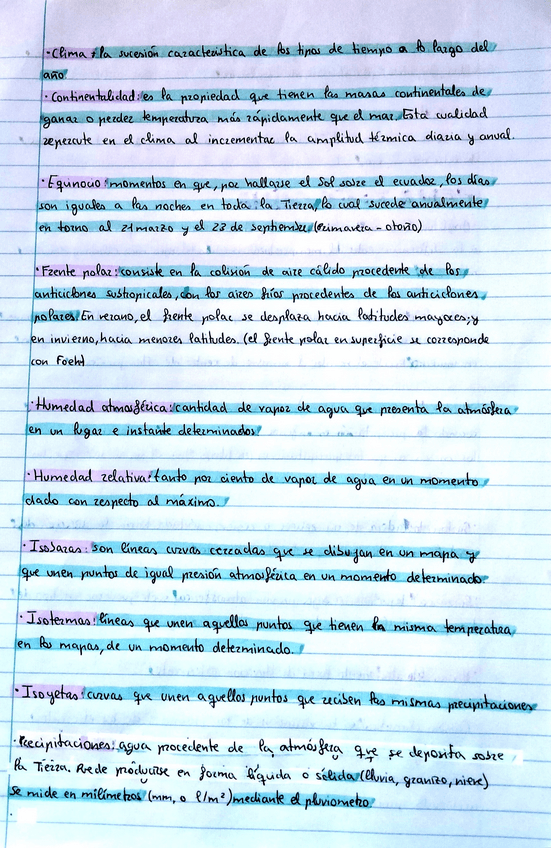 · Clima: la sucesión característica de los tipos de tiempo a lo largo del
año.
· Continentalidad: es la propiedad que tienen las masas continentales de
ganar o perder temperatura más rápidamente que el mar. Esta cualidad
repercute en el clima al incrementar la amplitud térmica diaria y anual.
· Equinocio: momentos en que, por hallarse el Sol sobre el ecuador, los días
son iguales a las noches en toda la Tierra, lo cual sucede anualmente
en torno al 21 marzo y el 23 de septiembre (primavera - otoño)
· Frente polar: consiste en la colisión de aire cálido procedente de los
anticiclones subtropicales, con los aires fríos procedentes de los anticiclones
polares. En verano, el frente polar se desplaza hacia latitudes mayores; y
en invierno, hacia menores latitudes. (el frente polar en superficie se corresponde
con Foehl)
· Humedad atmosférica: cantidad de vapor de agua que presenta la atmósfera
en un lugar e instante determinados.
· Humedad relativa: tanto por ciento de vapor de agua en un momento
dado con respecto al máximo.
· Isobaras: son líneas curvas cerradas que se dibujan en un mapa y
que unen puntos de igual presión atmosférica en un momento determinado.
· Isotermas: líneas que unen aquellos puntos que tienen la misma temperatura
en los mapas, de un momento determinado.
· Isoyetas: curvas que unen aquellos puntos que reciben las mismas precipitaciones
· Precipitaciones: agua procedente de la atmósfera que se deposita sobre
la Tierra. Puede producirse en forma líquida o sólida (lluvia, granizo, nieve)
Se mide en milímetros (mm, o l/m²) mediante el pluviometro.